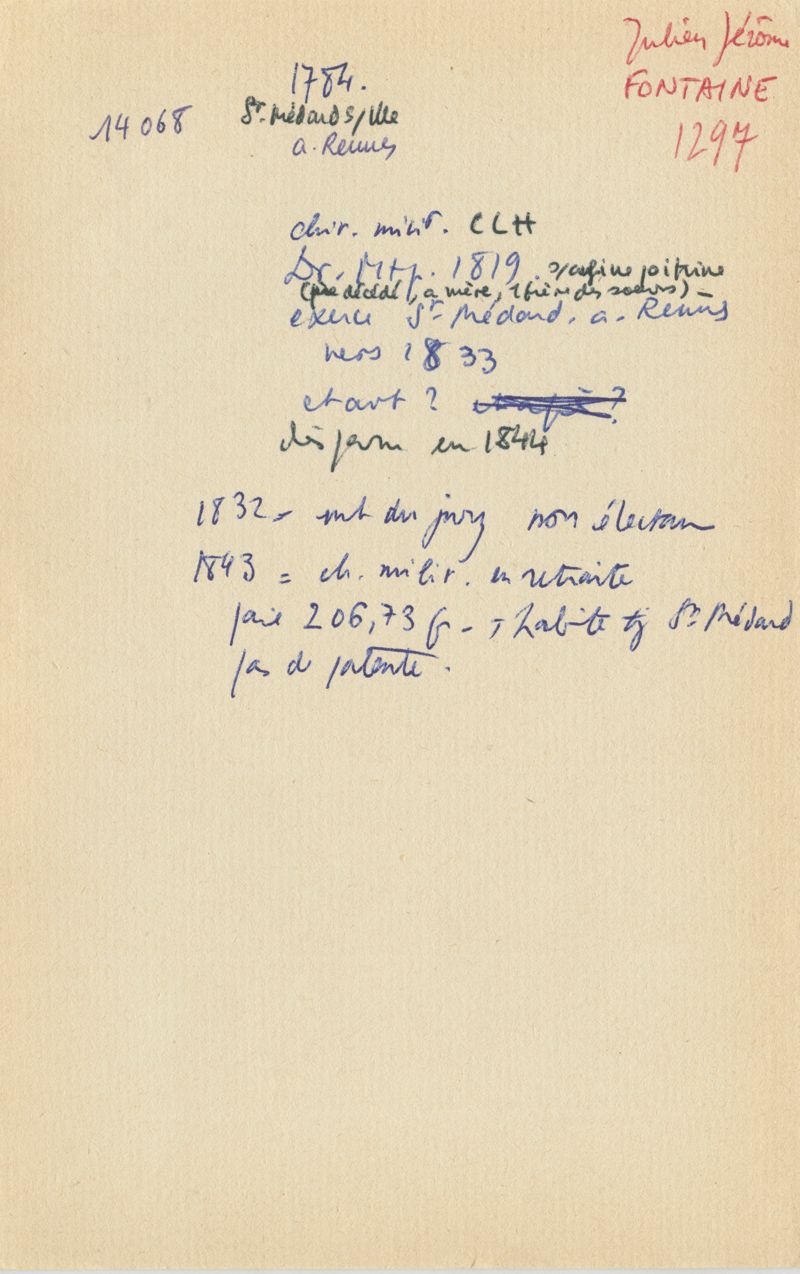 Julien Jérôme
FONTAINE
1297
1784.
14068
St. Médard s/Ille
a. Rennes
chir. milit. CLH
Dr. Mtp. 1819. s/angine poitrine
(père décédé, a mère, 1 frère des soeurs) -
exerce St Médard. a. Rennes
vers 1833
et avt ?
disparu en 1844
1832 - mb du jury non électeur
1843 = ch. milit. en retraite
paie 206,73 fr - habite tj St Médard
pas de patente.